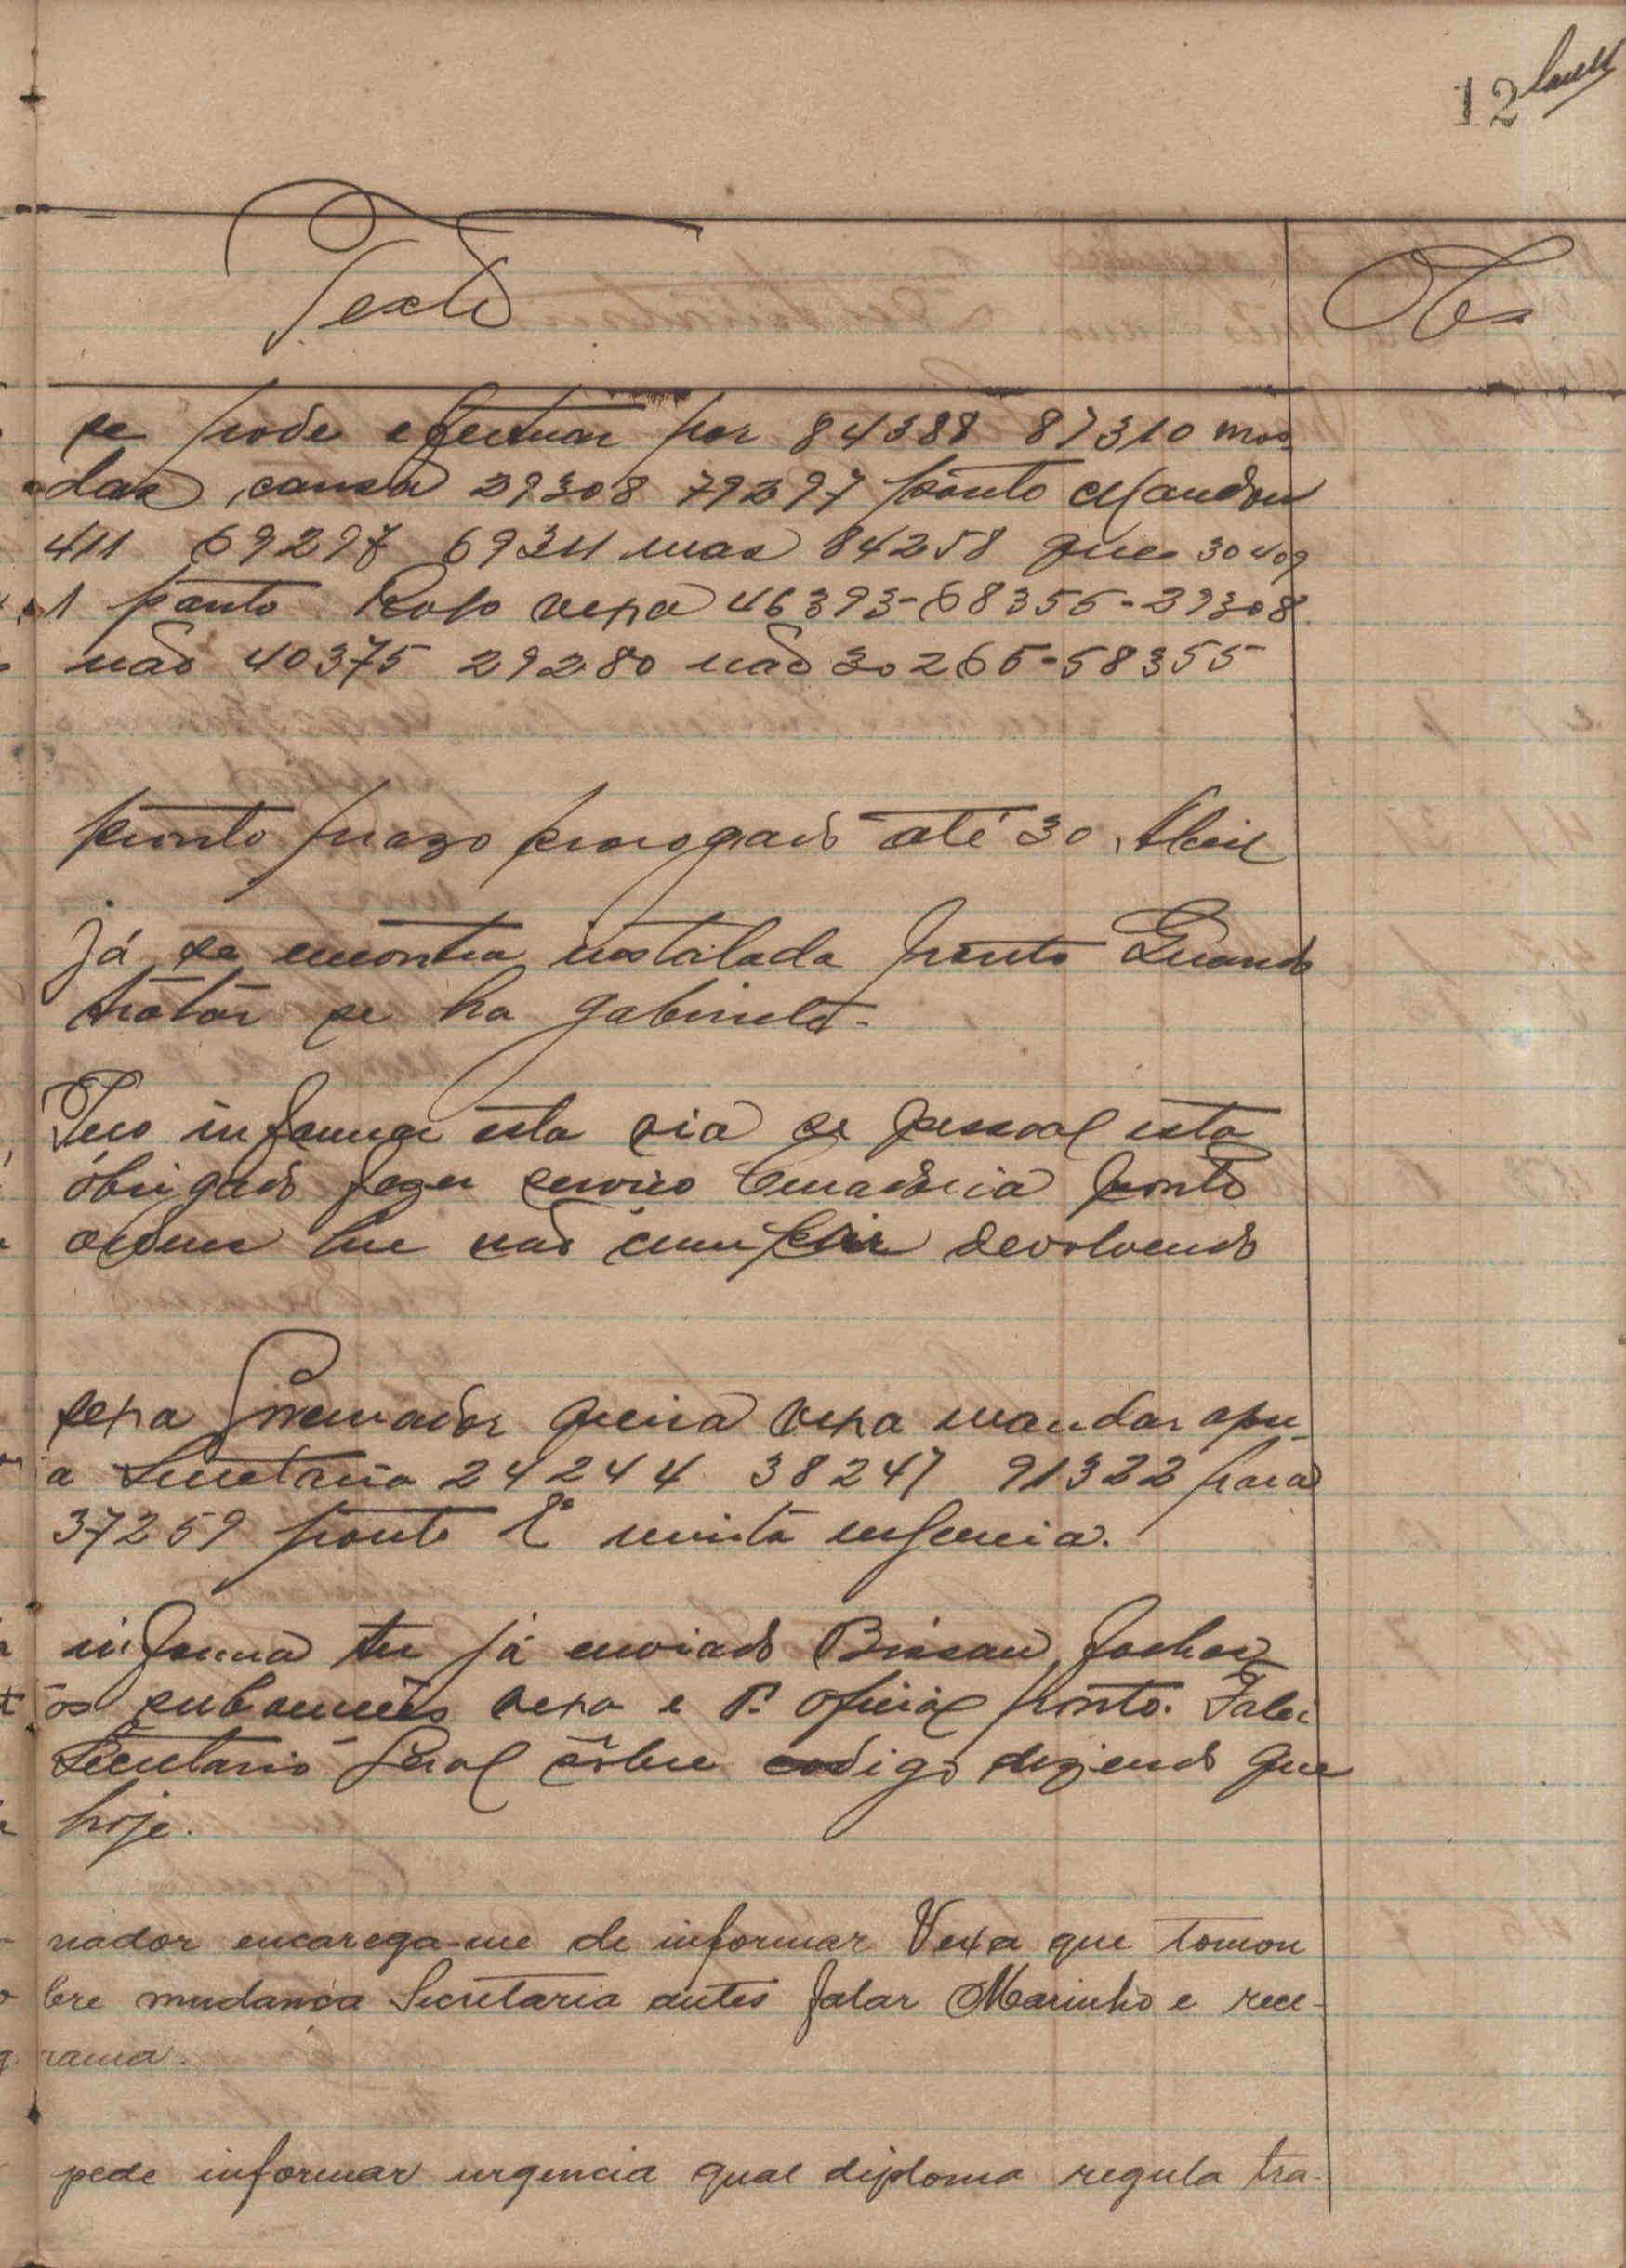 12
Texto
Obs
se pode efectuar por 84388 87310 mo
das causa 29308 79297 ponto Mandou
411 69297 69311 mas 84258 que 30409
1 ponto Rogo vexa 46393-68355-29308
não 40375 29280 não 30265-58355
ponto prazo prorogado até 30 Abril
já se encontra instalada ponto Quando
tratar se ha gabinete.
informar esta via se pessoal está
obrigado fazer serviço ponto
ordens lhe não cumprir devolvendo
sexa Governador queira vexa mandar
a Secretaria 24244 38247 91322 para
37259 ponto É muita urgencia.
informa ter já enviado Bissau
os vexa e 1º oficial ponto. Falei
Secretario Geral sôbre codigo dizendo que
hoje.
nador encarega-me de informar Vexa que tomou
bre mudança Secretaria antes falar Marinho e rece-
rama.
pede informar urgencia qual diploma regula tra-